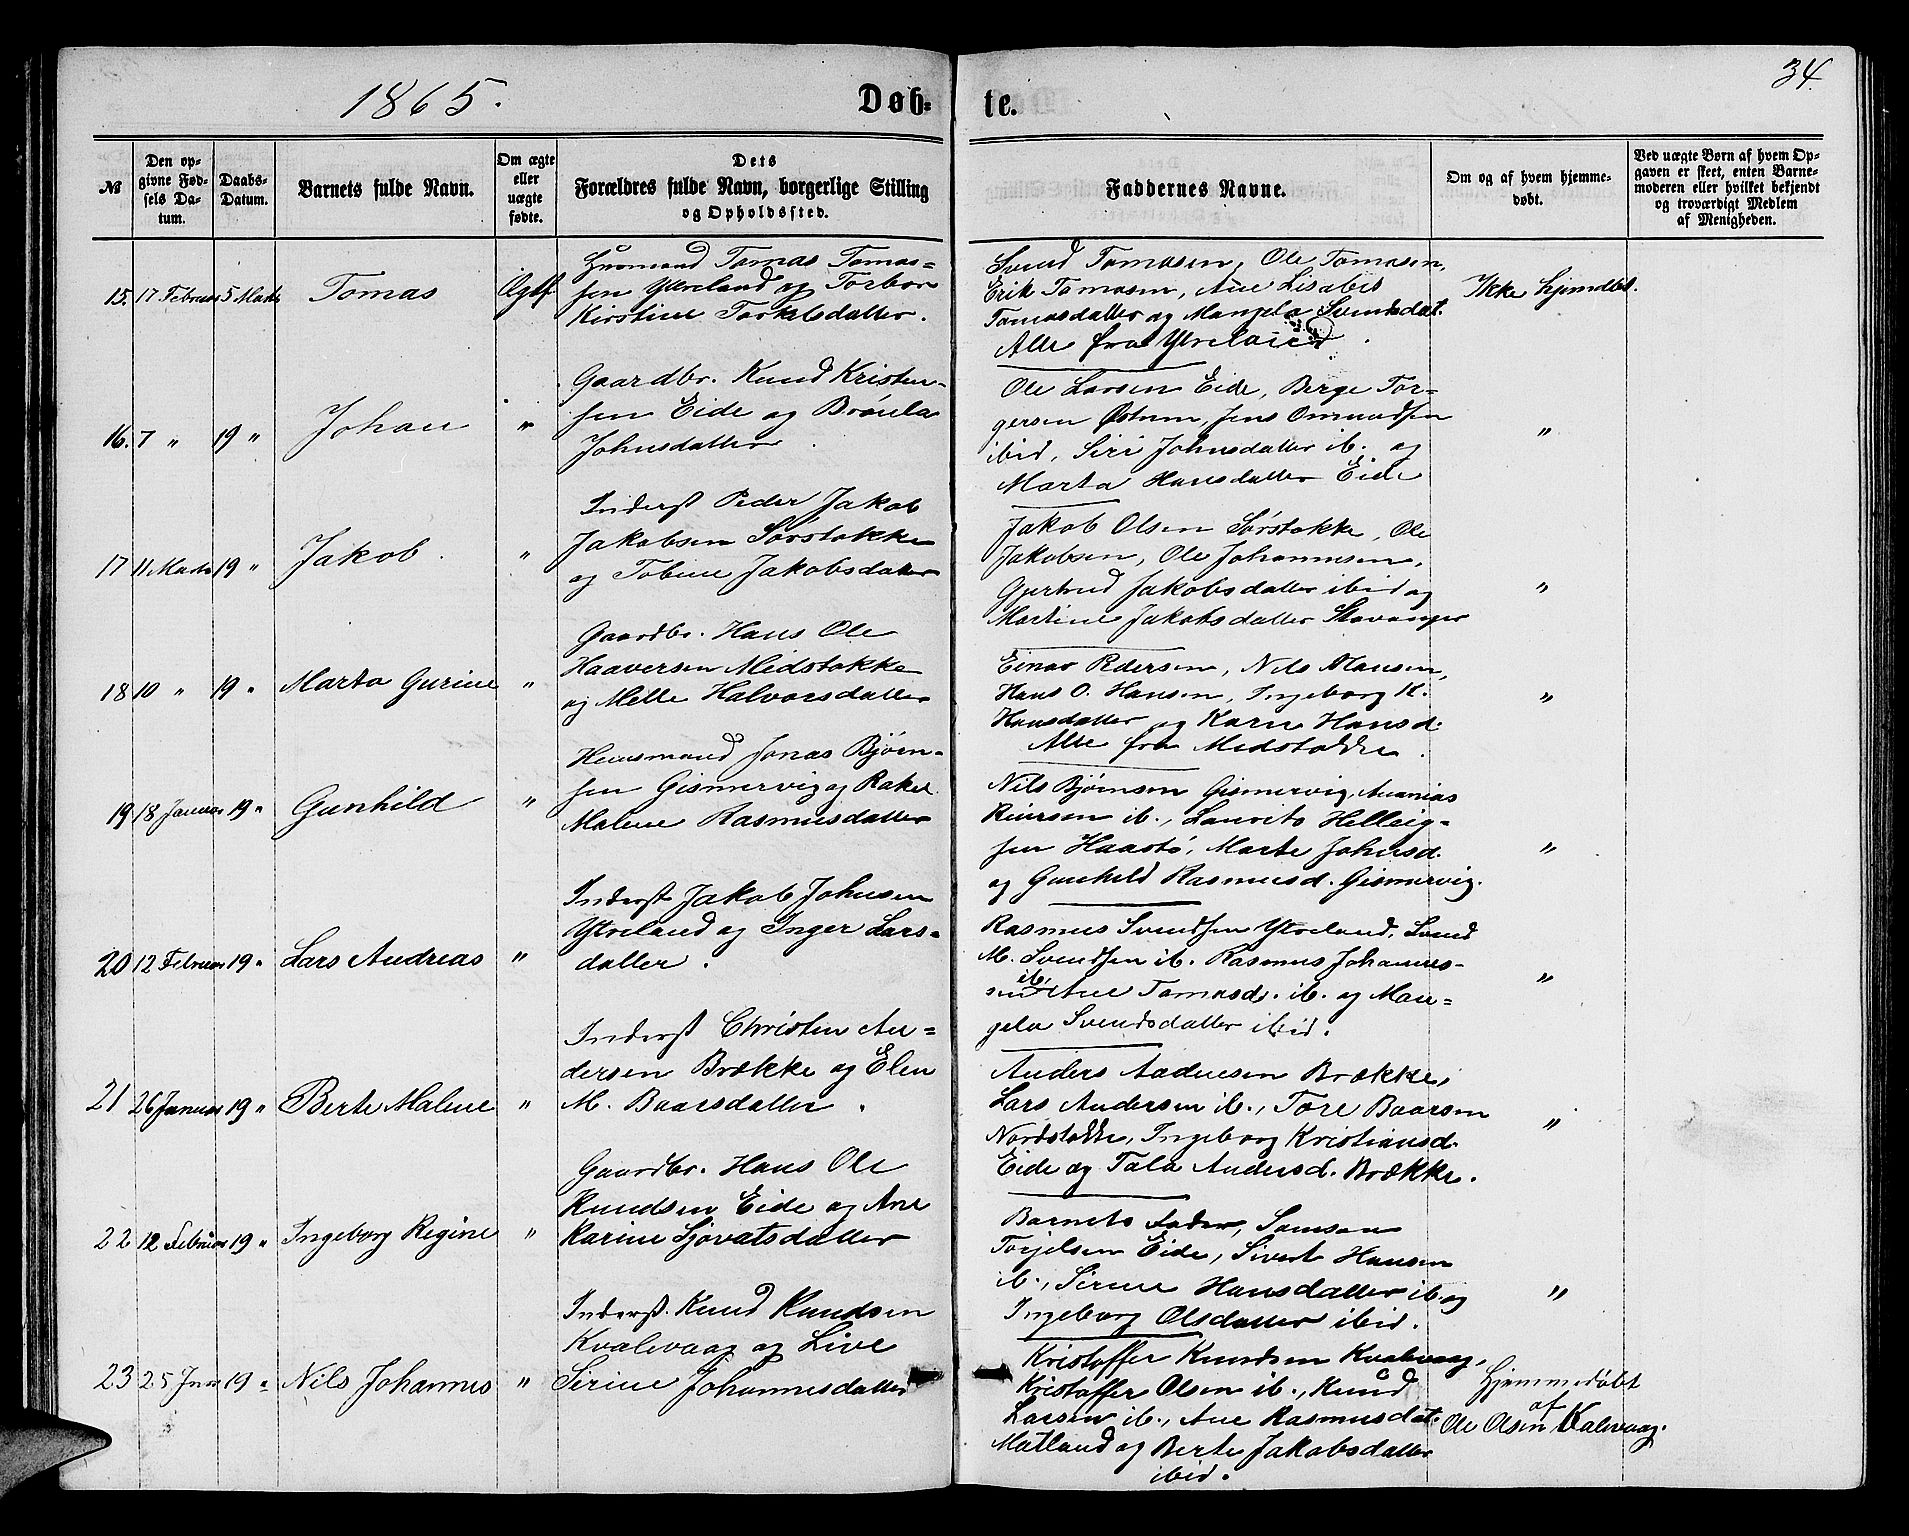 34.
1865.
Døb-
te.
№
Den op-
givne Fød-
sels Da-
tum.
Daabs-
Datum.
Barnets fulde Navn.
Om ægte
eller
uægte
fødte.
Dets
Forældres fulde Navn, borgerlige Stilling
og Opholdssted.
Faddernes Navne.
Om og af hvem hjemme-
døbt.
Ved uægte Børn af hvem Op-
gaven er skeet, enten Barne-
moderen eller hvilket bekjendt
og troværdigt Medlem
af Menigheden.
15. 17 Februar 5 Marts
Tomas
Ægtf.
Huusmand Tomas Tomas-
sen Ytreland og Torbor
Kirstine Torkelsdatter.
Svend Tomasen, Ole Tomasen,
Erik Tomasen, Ane Lisabet
Tomasdatter og Mangela Svendsdat.
Alle fra Ytreland.
Ikke hjemdbt.
16. 7 " 19 "
Johan
"
Gaardbr. Knud Kristen-
sen Eide og Brónla
Johnsdatter.
Ole Larsen Eide, Berge Tor-
gersen Østrem, Jens Omundsen
ibid, Siri Johnsdatter ib. og
Marta Hansdatter Eide
"
17 11 Marts 19 "
Jakob.
"
Inderst Peder Jakob
Jakobsen Sørstokke
og Tobine Jakobsdatter
Jakob Olsen Sørstokke, Ole
Jakobsen, Ole Johannesen,
Gjertrud Jakobsdatter ibid og
Martine Jakobsdatter Stavanger
"
18 10 " 19 "
Marta Gurine
"
Gaardbr. Hans Ole
Haaversen Midstokke
og Mille Halvorsdatter
Einar Pedersen, Nils Hansen,
Hans O. Hansen, Ingeborg H.
Hansdatter og Karn Hansd.
Alle fra Midstokke.
"
19 18 Januar 19 "
Gunhild
"
Huusmand Jonas Bjørn-
sen Gismervig og Rakel
Malene Rasmusdatter
Nils Bjørnsen Gismervig, Ananias
Reiersen ib., Laurits Helleig-
sen Haastø, Marte Johnsd.
og Gunhild Rasmusd. Gismervig.
"
20 12 Februar 19 "
Lars Andreas
"
Inderst Jakob Johnsen
Ytreland og Inger Lars-
datter.
Rasmus Svendsen Ytreland, Svend
M. Svendsen ib. Rasmus Johannes-
sen ib. Ane Tomasd. ib. og Man-
gela Svendsdatter ibid.
"
21 26 Januar 19 "
Berte Malene
"
Inderst Christen An-
dersen Brække og Elen
M. Baarsdatter.
Anders Andersen Brække,
Lars Andersen ib., Tore Baarsen
Nordstokke, Ingeborg Kristiansd.
Eide og Tala Andersd. Brække.
"
22 12 Februar 19 "
Ingeborg Regine
"
Gaardbr. Hans Ole
Knudsen Eide og Ane
Karine Sjovatsdatter
Barnets Fader, Samson
Torjelsen Eide, Sivert Hansen
ib., Serine Hansdatter ib. og
Ingeborg Olsdatter ibid.
"
23 25 Jnar 19 "
Nils Johannes
"
Inderst. Knud Knudsen
Kvalevaag og Live
Serine Johannesdatter
Kristoffer Knudsen Kvalevaag,
Kristoffer Olsen ib., Knud
Larsen ib., Ane Rasmusdat.
Matland og Berte Jakobsdatter
ibid.
Hjemmedøbt
af
Ole Olsen Kvalevaag.